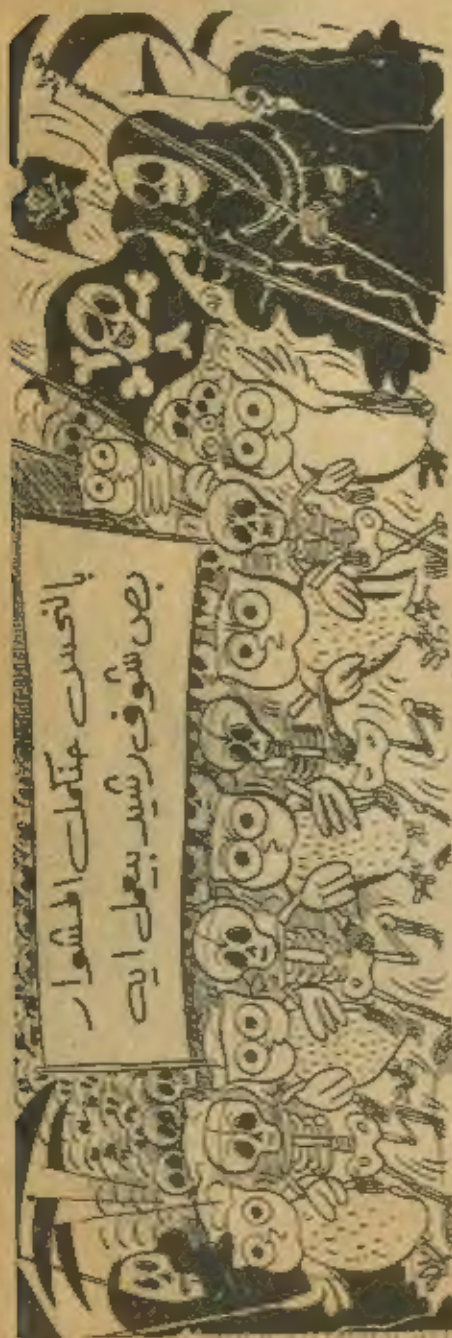 بالنحس حنكمل المشوار
بص شوف رشيد بيعمل ايه